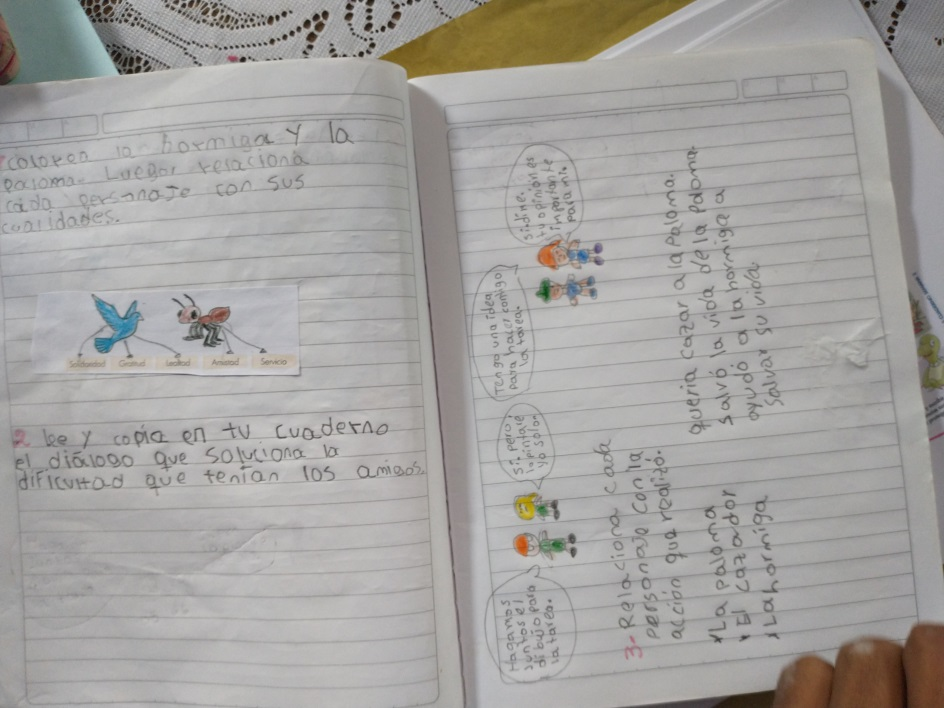 colorea la hormiga y la
paloma. Luego, relaciona
cada personaje con sus
cualidades.
Solidaridad Gratitud Lealtad Amistad Servicio
2 lee y copia en tu cuaderno
el diálogo que soluciona la
dificultad que tenían los amigos.
Hagamos
juntos el
dibujo para
la tarea.
Si. pero
lo pintaré
yo solo
Tengo una idea
para hacer comigo
la tarea.
Si. dime.
tu opinión es
importante
para mi.
3- Relaciona cada
personaje con la
acción que realizó.
*La paloma
*El cazador
*La hormiga
quería cazar a la paloma.
salvó la vida de la paloma.
ayudó a la hormiga a
salvar su vida